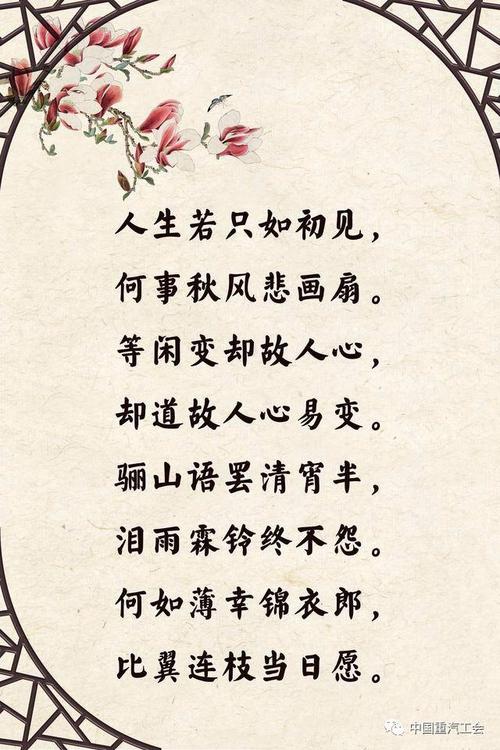 人生若只如初见，
何事秋风悲画扇。
等闲变却故人心，
却道故人心易变。
骊山语罢清宵半，
泪雨霖铃终不怨。
何如薄幸锦衣郎，
比翼连枝当日愿。
中国重汽工会